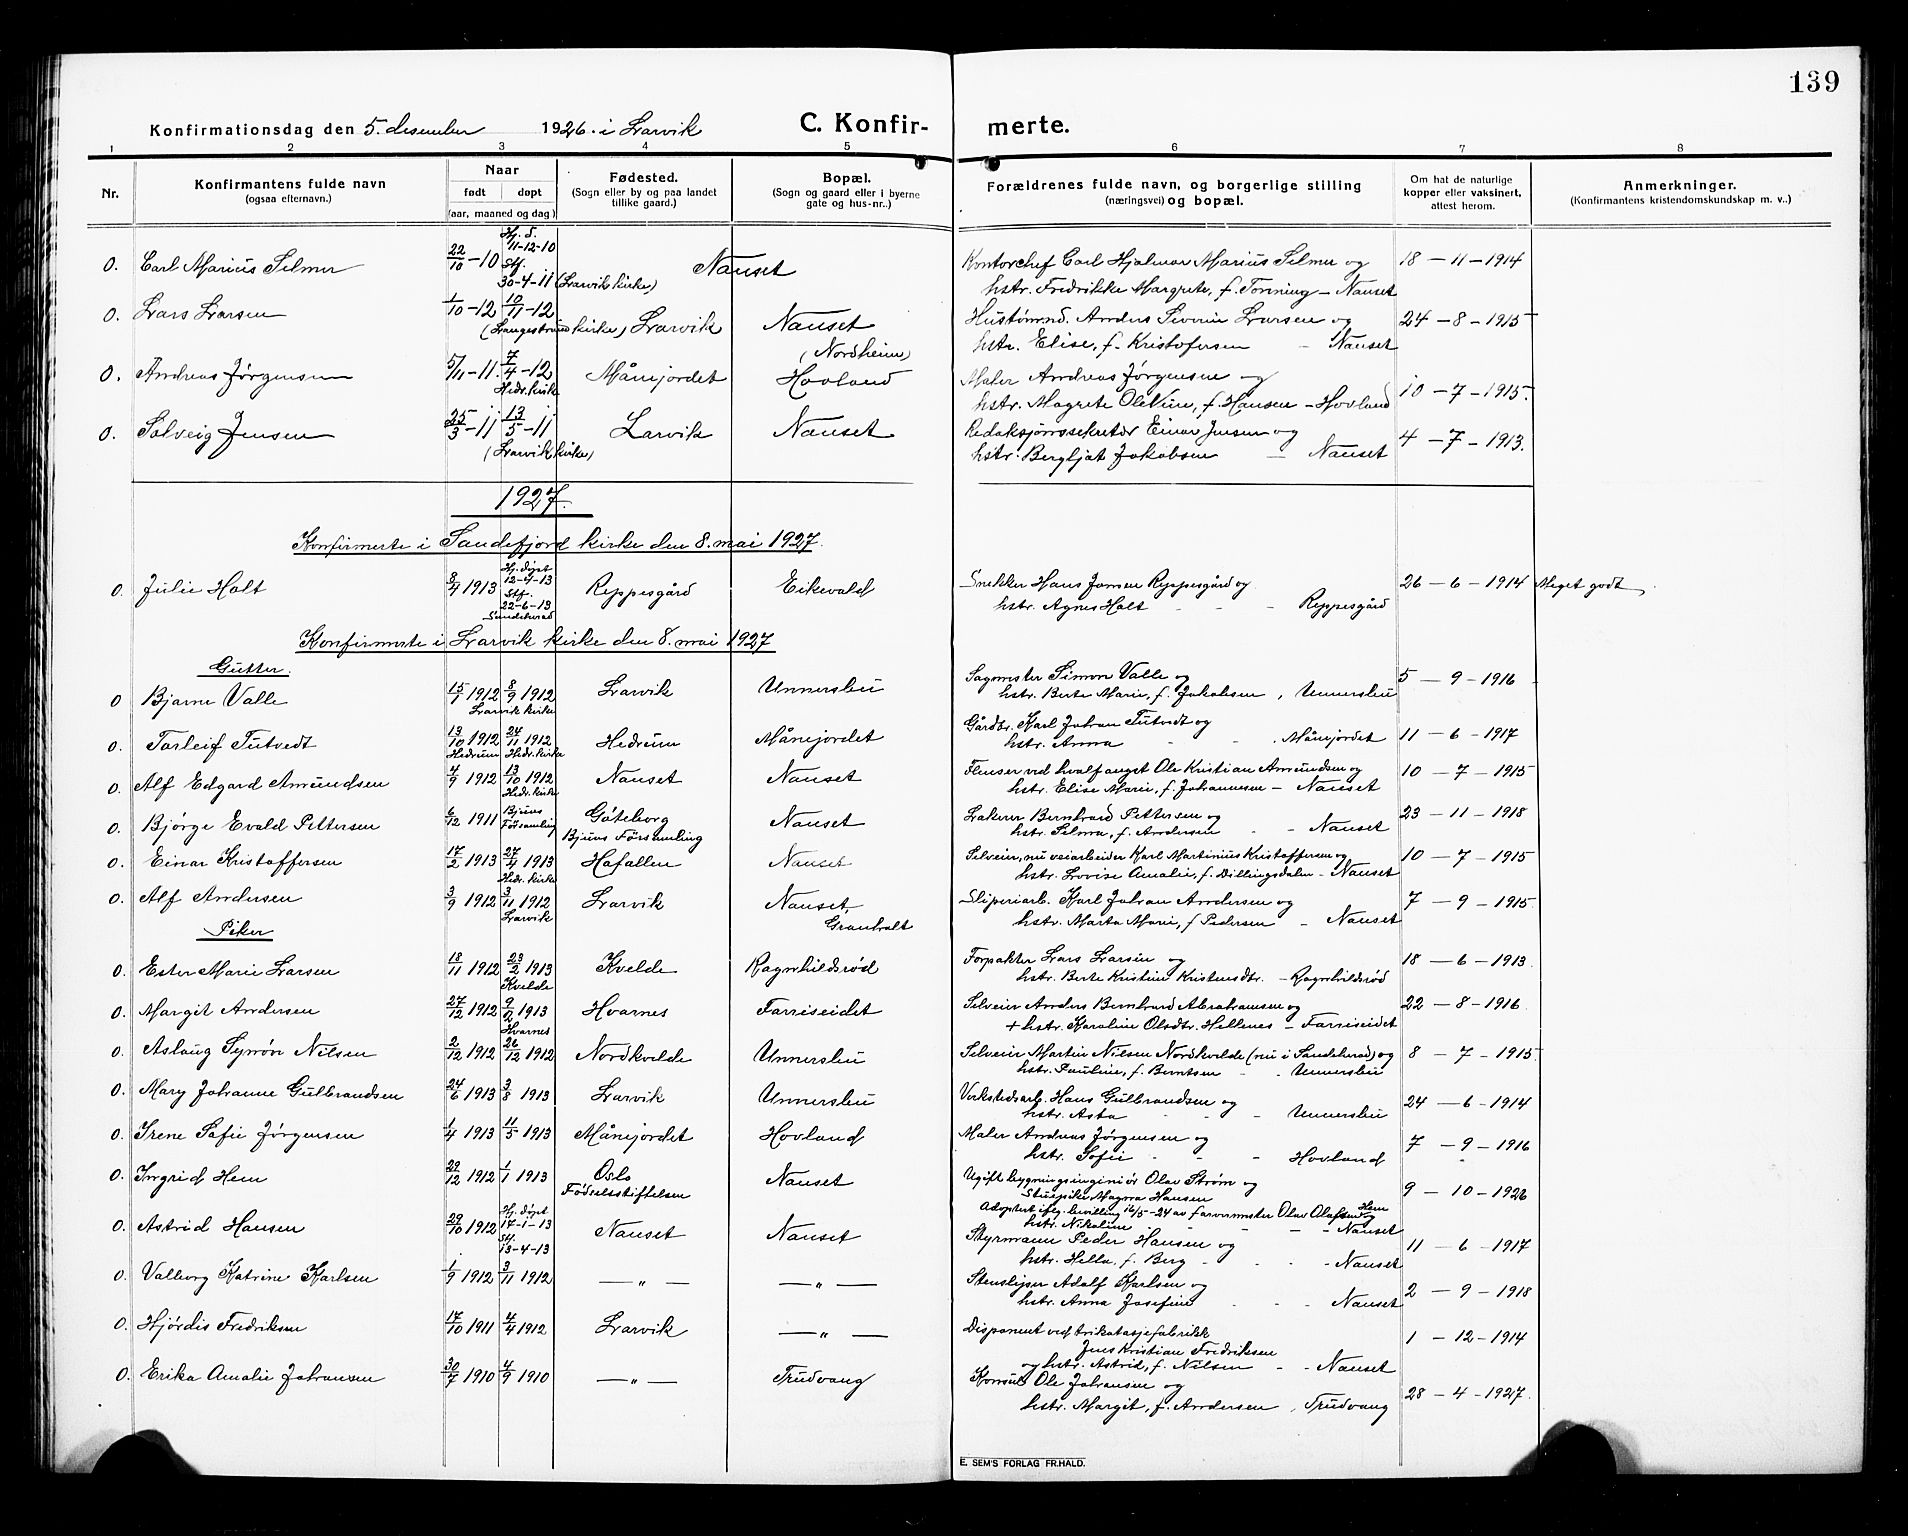 139
Konfirmationsdag den 5. desember 1926. i Larvik C. Konfirmerte.
1 2 3 4 5 6 7 8
Nr.
Konfirmantens fulde navn
(ogsaa efternavn.)
Naar
født døpt
(aar, maaned og dag)
Fødested.
(Sogn eller by og paa landet
tillike gaard.)
Bopæl.
(Sogn og gaard eller i byerne
gate og hus-nr..)
Forældrenes fulde navn, og borgerlige stilling
(næringsvei) og bopæl.
Om hat de naturlige
kopper eller vaksinert,
attest herom.
Anmerkninger.
(Konfirmantens kristendomskundskap m. v..)
0. Carl Marius Selmer 22/10-10 Hj. d. 11-12-10 Stf. 30-4-11 (Larvik kirke) Nauset Kontorchef Carl Hjalmar Marius Selmer og 18-11-1914
hstr. Fredrikke Margrete, f. Tønning - Nauset
0. Lars Larsen 1/10-12 10/11-12 (Langestrand kirke) Larvik Nauset (Nordheim) Anders Severin Larsen og 24-8-1915
hstr. Elise, f. Kristofersen - Nauset
0. Andreas Jørgensen 5/11-11. 7/4-12 Hedr. kirke Månejordet Hovland Maler Andreas Jørgensen og 10-7-1915.
hstr. Magrete Oleine, f. Hansen - Hovland
0. Solveig Jensen 25/3-11 13/5-11 (Larvik kirke) Larvik Nauset Redaksjonssekretær Einar Jensen og 4-7-1913.
hstr. Bergljot Jakobsen - Nauset
1927.
Konfirmerte i Sandefjord kirke den 8. mai 1927.
0. Julie Holt 8/4 1913 Hj. døpt 12-4-13 Stf. 22-6-13 Sandeherad Reppesgård Eikevald Snekker Hans Jansen Reppesgård og 26-6-1914 Meget godt.
hstr. Agnes Holt - - - Reppesgård
Konfirmerte i Larvik kirke den 8. mai 1927
Gutter.
0 Bjarne Valle 15/7 1912 8/9 1912 Larvik kirke Larvik Unnersbu Sagmester Simon Valle og 5-9-1916
hstr. Berte Marie, f. Jakobsen, Unnersbu
0. Torleif Tutvedt 13/10 1912 Hedrum 24/11 1912 Hedr. kirke Hedrum Månejordet Gårdbr. Karl Johan Tutvedt og 11-6-1917
hstr. Anna - - Månejordet
0. Alf Edgard Amundsen 4/9 1912 13/10 1912 Hedr. kirke Nauset Nauset Flenser ved hvalfangst Ole Kristian Amundsen og 10-7-1915
hstr. Elise Marie, f. Johannesen - Nauset
0. Bjørge Evald Pettersen 6/12 1911 Bjuns Församling Göteborg Bjuns Församling Nauset Lakerer Bernhard Pettersen og 23-11-1918
hstr. Selma, f. Andersen - - Nauset
0. Einar Kristoffersen 17/2 1913 27/4 1913 Hedr. kirke Hafallen Nauset Selveier, nu veiarbeider Karl Martinius Kristoffersen og 10-7-1915
hstr. Lovise Amalie, f. Dillingsdalen - Nauset
0. Alf Andersen 3/9 1912 3/11 1912 Larvik Larvik Nauset, Granholt Sliperiarb. Karl Johan Andersen og 7-9-1915.
hstr. Marta Marie, f. Pedersen - Nauset
Piker
0. Ester Marie Larsen 18/11 1912 23/2 1913 Kvelde Kvelde Ragnhildsrød Forpakter Lars Larsen og 18-6-1913
hstr. Berte Kristine Kristensdtr. - Ragnhildsrød
0. Margit Andersen 27/12 1912 9/2 1913 Hvarnes Hvarnes Farriseidet Selveier Anders Bernhard Abrahamsen og 22-8-1916.
+ hstr. Karoline Olsdtr. Hellenes - Farriseidet
0. Aslaug Synøn Nilsen 2/12 1912 26/12 1912 Nordkvelde Unnersbu Selveier Martin Nilsen Nordkvelde (nu i Sandeherad) og 8-7-1915
hstr. Pauline, f. Berntsen - - Unnersbu
0. Mary Johanne Gulbrandsen 24/6 1913 3/8 1913 Larvik Unnersbu Verkstedsarb. Hans Gulbrandsen og 24-6-1914
hstr. Asta - - - Unnersbu
0. Irene Sofie Jørgensen 1/4 1913 11/5 1913 Månejordet Hovland Maler Andreas Jørgensen og 7-9-1916
hstr. Sofie - - - Hovland
0. Ingrid Hem 22/12 1912 1/1 1913 Oslo Födselsstiftelsen Nauset Ugift bygningsingeniør Olav Strøm og 9-10-1926
Stuepike Magna Hansen
Adoptert iflg. bevilling 16/5-24 av farvermester Olav Olafsen Hem og
hstr. Nikoline - - - Nauset
0. Astrid Hansen 29/10 1912 Hj. døpt 17-1-13 Stf. 13-4-13 Nauset Nauset Styrmann Peder Hansen og 11-6-1917
hstr. Hella, f. Berg - - - Nauset
0. Valborg Katrine Karlsen 1/9 1912 3/11 1912 —„— —„— Stensliper Adolf Karlsen og 2-9-1918
hstr. Anna Josefine - - Nauset
0. Hjørdis Fredriksen 17/10 1911 4/4 1912 Larvik —„— Disponent ved trikotasjefabrikk 1-12-1914
Jens Kristian Fredriksen
og hstr. Astrid, f. Nilsen - - Nauset
0. Erika Amalie Johansen 30/7 1910 4/9 1910 —„— Trudvang Konsul Ole Johansen og 28-4-1927.
hstr. Margit, f. Andersen, Trudvang
E. SEM'S FORLAG FR.HALD.